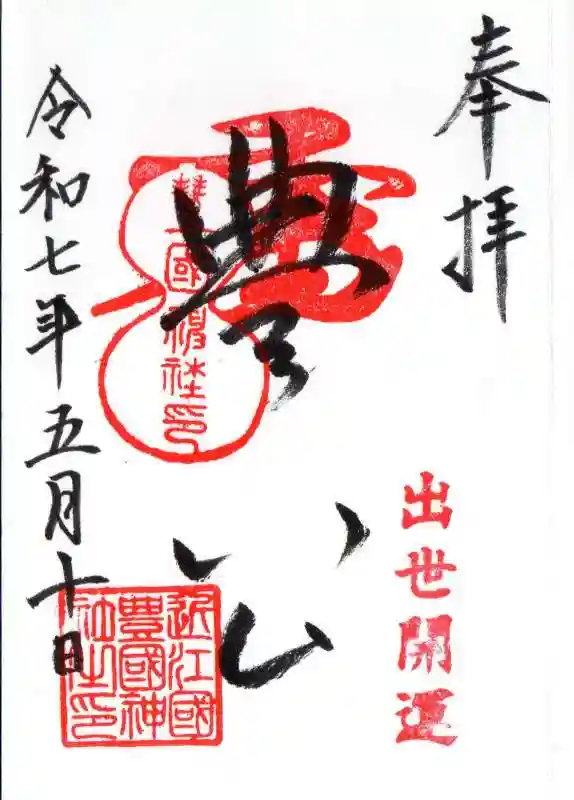 奉拝
豊公
出世開運
豊國神社印
近江國
豊國神
社之印
令和七年五月十日